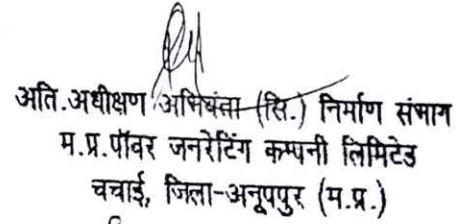 अति.अधीक्षण अभियंता (सि.) निर्माण संभाग
म.प्र.पॉवर जनरेटिंग कम्पनी लिमिटेड
चचाई, जिला-अनूपपुर (म.प्र.)